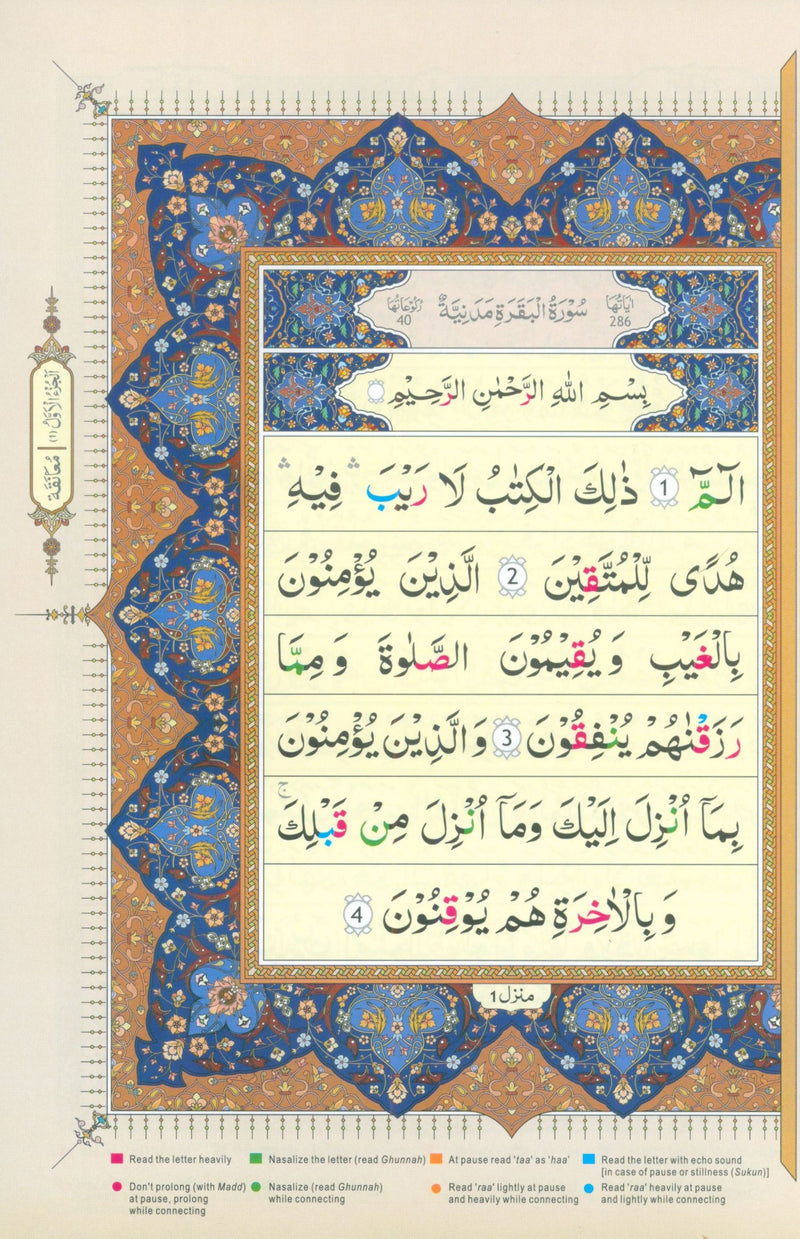 اٰيَاتُهَا 286 سُوْرَةُ الْبَقَرَةِ مَدَنِيَّةٌ رُكُوْعَاتُهَا 40
بِسْمِ اللّٰهِ الرَّحْمٰنِ الرَّحِيْمِ
الٓـمّٓ 1 ذٰلِكَ الْكِتٰبُ لَا رَيْبَ ۛ فِيْهِ ۛ
هُدًى لِّلْمُتَّقِيْنَ 2 الَّذِيْنَ يُؤْمِنُوْنَ
بِالْغَيْبِ وَ يُقِيْمُوْنَ الصَّلٰوةَ وَ مِمَّا
رَزَقْنٰهُمْ يُنْفِقُوْنَ 3 وَ الَّذِيْنَ يُؤْمِنُوْنَ
بِمَاۤ اُنْزِلَ اِلَيْكَ وَمَاۤ اُنْزِلَ مِنْ قَبْلِكَ ۚ
وَ بِالْاٰخِرَةِ هُمْ يُوْقِنُوْنَ 4
منزل 1
اَلْجُزْءُ الْاَوَّلُ (۱)
مُعَانَقَة
Read the letter heavily
Nasalize the letter (read Ghunnah)
At pause read 'taa' as 'haa'
Read the letter with echo sound
[in case of pause or stillness (Sukun)]
Don't prolong (with Madd)
at pause, prolong
while connecting
Nasalize (read Ghunnah)
while connecting
Read 'raa' lightly at pause
and heavily while connecting
Read 'raa' heavily at pause
and lightly while connecting